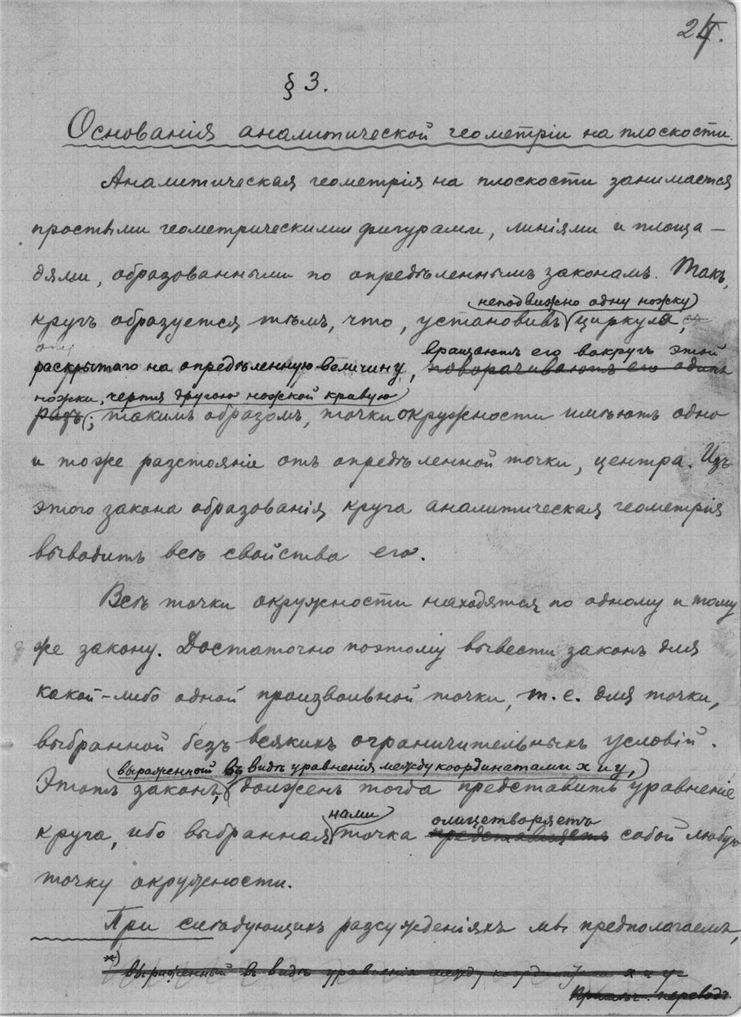 § 3.
Основанія аналитической геометріи на плоскости.
Аналитическая геометрія на плоскости занимается
простыми геометрическими фигурами, линіями и площа-
дями, образованными по опредѣленнымъ законамъ. Такъ,
неподвижно одну ножку
кругъ образуется тѣмъ, что, установивъ циркуля,
вращаютъ его вокругъ этой
раскрытаго на опредѣленную величину, поворачиваютъ его одинъ
ножки, чертя другою ножкой кривую
разъ; такимъ образомъ, точки окружности имѣютъ одно
и тоже разстояніе отъ опредѣленной точки, центра. Изъ
этого закона образованія круга аналитическая геометрія
выводитъ всѣ свойства его.
Всѣ точки окружности находятся по одному и тому
же закону. Достаточно поэтому вывести законъ для
какой-либо одной произвольной точки, т. е. для точки,
выбранной безъ всякихъ ограничительныхъ условій.
выраженной въ видѣ уравненія между координатами x и y,
Этотъ законъ, долженъ тогда представить уравненіе
нами олицетворяетъ
круга, ибо выбранная точка представляетъ собой любую
точку окружности.
При слѣдующихъ разсужденіяхъ мы предполагаемъ,
*) выраженный въ видѣ уравненія между координатами x и y